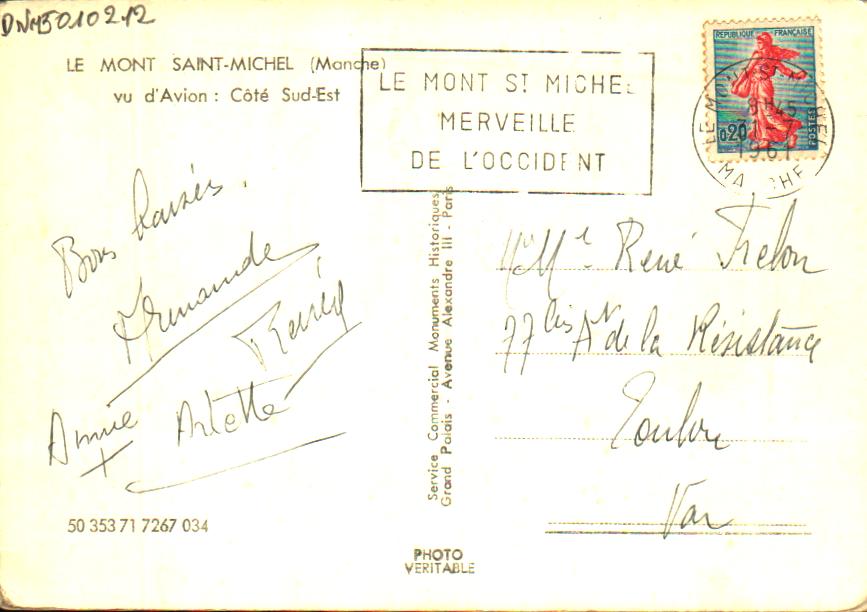 DNM5010212
LE MONT SAINT-MICHEL (Manche)
vu d'Avion : Côté Sud-Est
LE MONT ST MICHEL
MERVEILLE
DE L'OCCIDENT
REPUBLIQUE FRANÇAISE
0,20
POSTES
LE MONT ST MICHEL
8H45
31-7
1961
MANCHE
Bons baisers.
Armande
René
Annie
Arlette
Service Commercial Monuments Historiques
Grand Palais - Avenue Alexandre III - Paris
Mr Me René Trelon
77 bis Av de la Résistance
Toulon
Var
50 353 71 7267 034
PHOTO
VERITABLE